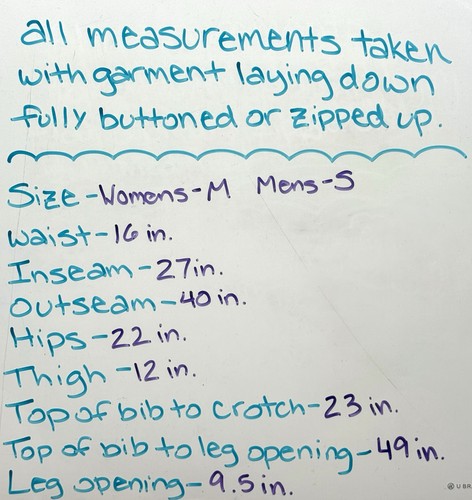 all measurements taken
with garment laying down
fully buttoned or zipped up.
Size-Womens-M Mens-S
Waist-16 in.
Inseam-27in.
Outseam-40 in.
Hips-22 in.
Thigh-12 in.
Top of bib to crotch-23 in.
Top of bib to leg opening-49 in.
Leg opening-9.5 in.